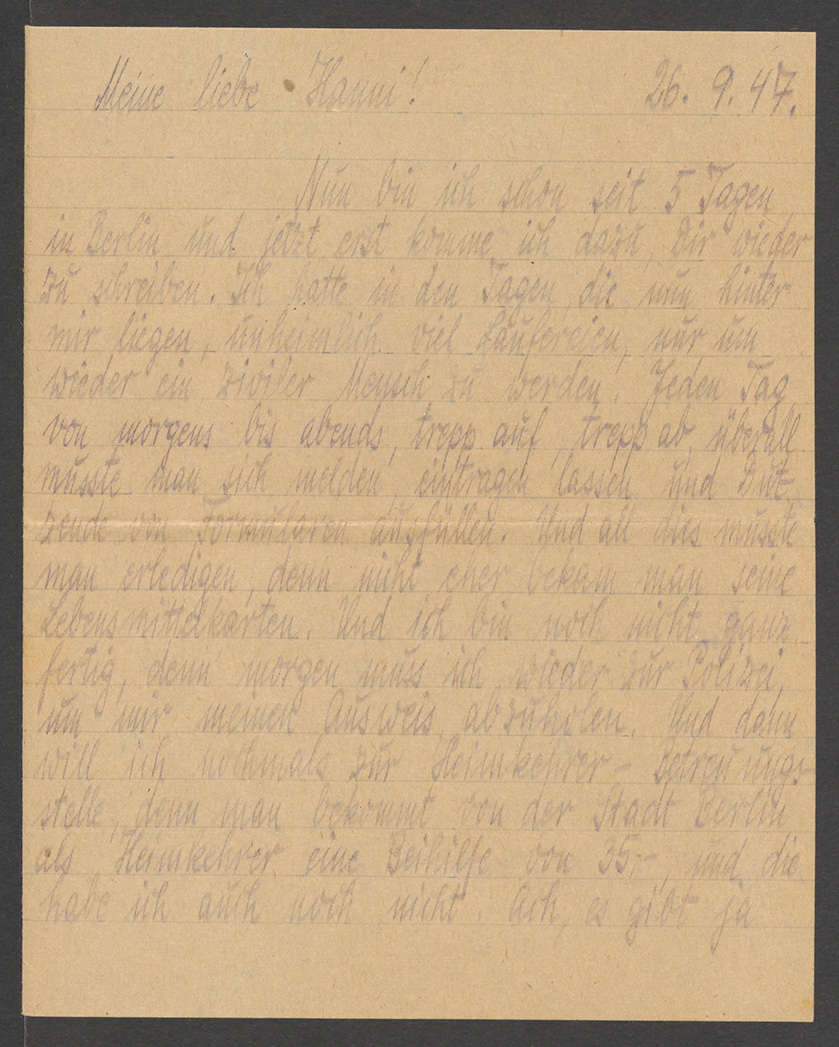 Meine liebe Hanni! 26. 9. 47.
Nun bin ich schon seit 5 Tagen
in Berlin und jetzt erst komme ich dazu, Dir wieder
zu schreiben. Ich hatte in den Tagen, die nun hinter
mir liegen, unheimlich viel Laufereien, nur um
wieder ein ziviler Mensch zu werden. Jeden Tag
von morgens bis abends, trepp auf, trepp ab, überall
musste man sich melden, eintragen lassen und Dut-
zende von Formularen ausfüllen. Und all dies musste
man erledigen, denn nicht eher bekam man seine
Lebensmittelkarten. Und ich bin noch nicht ganz
fertig, denn morgen muss ich wieder zur Polizei,
um mir meinen Ausweis abzuholen. Und dann
will ich nochmals zur Heimkehrer-Betreuungs-
stelle, denn man bekommt von der Stadt Berlin
als Heimkehrer eine Beihilfe von 35.-, und die
habe ich auch noch nicht. Ach, es gibt ja